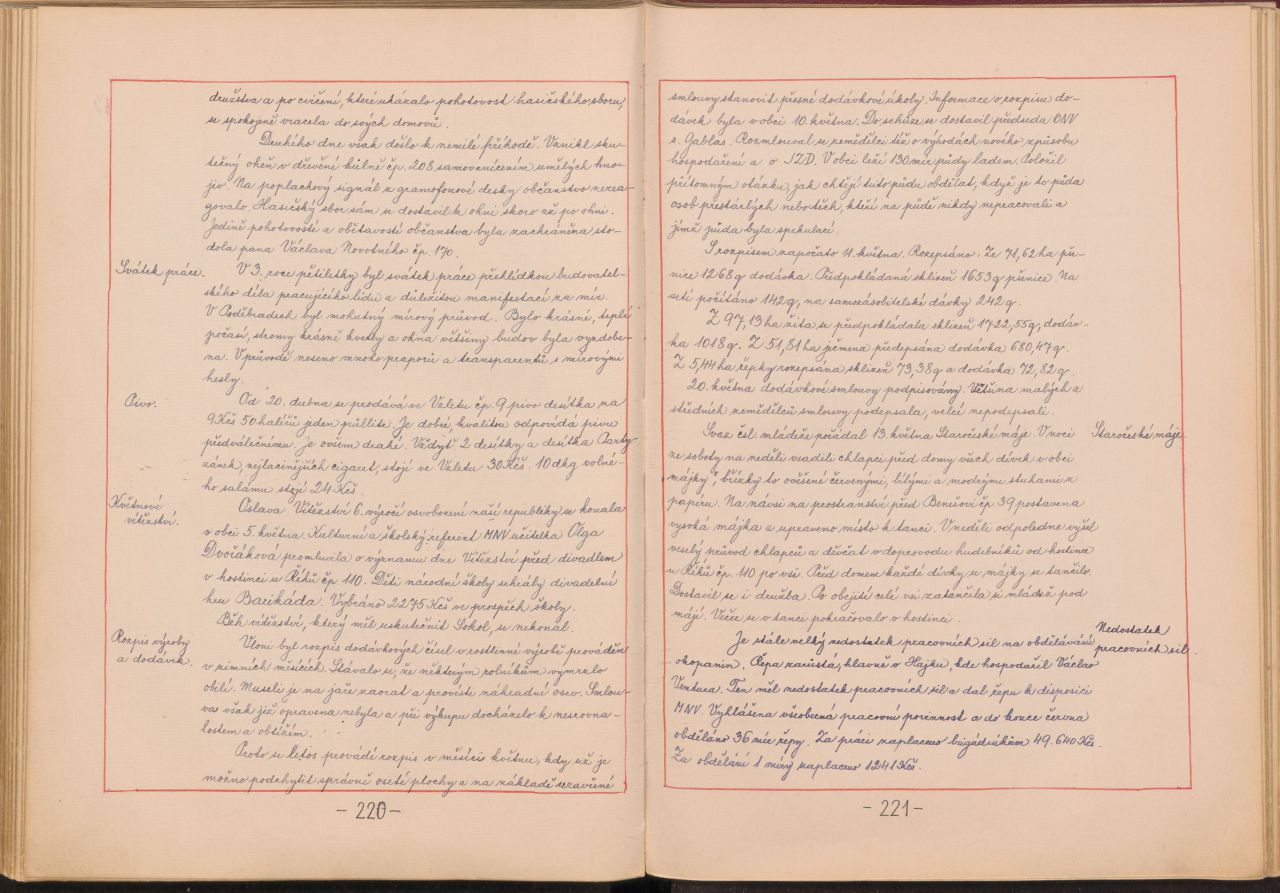 družstva a po cvičení, které ukázalo pohotovost hasičského sboru,
se spokojeně vracela do svých domovů.
Druhého dne však došlo k nemilé příhodě. Vznikl sku-
tečný oheň v dřevěné kůlně čp. 208 samovznícením umělých hno-
jiv. Na poplachový signál z gramofonové desky občanstvo nerea-
govalo. Hasičský sbor sám se dostavil k ohni skoro až po ohni.
Jedině pohotovostí a obětavostí občanstva byla zachráněna sto-
dola pana Václava Novotného čp. 170.
Svátek práce.
V 3. roce pětiletky byl svátek práce přehlídkou budovatel-
ského díla pracujícího lidu a důležitou manifestací za mír.
V Poděbradech byl mohutný mírový průvod. Bylo krásné, teplé
počasí, stromy krásně kvetly a okna většiny budov byla vyzdobe-
na. V průvodě neseno mnoho praporů a transparentů s mírovými
hesly.
Pivo.
Od 20. dubna se prodává ve Vzletu čp. 9 pivo desítka na
9 Kčs 50 haléřů jeden půllitr. Je dobré, kvalitou odpovídá pivu
předválečnému, je ovšem drahé. Vždyť 2 desítky a desítka Party-
zánek, nejlacinějších cigaret, stojí ve Vzletu 30 Kčs. 10 dkg volné-
ho salámu stojí 24 Kčs.
Květnové
vítězství.
Oslava Vítězství 6. výročí osvobození naší republiky se konala
v obci 5. května. Kulturní a školský referent MNV učitelka Olga
Dvořáková promluvila o významu dne Vítězství před divadlem
v hostinci u Říhů čp. 110. Děti národní školy sehrály divadelní
hru Barikáda. Vybráno 2275 Kčs ve prospěch školy.
Běh vítězství, který měl uskutečnit Sokol, se nekonal.
Rozpis výroby
a dodávek.
Vloni byl rozpis dodávkových čísel v rostlinné výrobě prováděn
v zimních měsících. Stávalo se, že některým rolníkům vymrzlo
obilí. Museli je na jaře zaorat a provésti náhradní osev. Smlou-
va však již opravena nebyla a při výkupu docházelo k nesrovna-
lostem a obtížím.
Proto se letos provádí rozpis v měsíci květnu, kdy už je
možno podchytit správně oseté plochy a na základě uzavřené
- 220 -
smlouvy stanovit přesné dodávkové úkoly. Informace o rozpisu do-
dávek byla v obci 10. května. Do schůze se dostavil předseda ONV
s. Gablas. Rozmlouval se zemědělci též o výhodách nového způsobu
hospodaření a o JZD. V obci leží 130 mír půdy ladem. Položil
přítomným otázku, jak chtějí tuto půdu obdělat, když je to půda
osob přestárlých nebo těch, kteří na půdě nikdy nepracovali a
jimž půda byla spekulací.
S rozpisem započato 11. května. Rozepsáno: Ze 71,62 ha pše-
nice 1268 q dodávka. Předpokládaná sklizeň 1653 q pšenice. Na
setí počítáno 142 q, na samozásobitelské dávky 242 q.
Z 97,13 ha žita se předpokládala sklizeň 1722,55 q, dodáv-
ka 1018 q. Z 51,81 ha ječmena předepsána dodávka 680,47 q.
Z 5,44 ha řepky rozepsána sklizeň 73,38 q a dodávka 72,82 q.
20. května dodávkové smlouvy podpisovány. Většina malých a
středních zemědělců smlouvy podepsala, velcí nepodepsali.
Staročeské máje.
Svaz čsl. mládeže pořádal 13. května Staročeské máje. V noci
ze soboty na neděli vsadili chlapci před domy všech dívek v obci
"májky", břízky to ověšené červenými, bílými a modrými stuhami z
papíru. Na návsi na prostranství před Benešovi čp. 39 postavena
vysoká májka a upraveno místo k tanci. V neděli odpoledne vyšel
veselý průvod chlapců a děvčat v doprovodu hudebníků od hostince
u Říhů čp. 110 po vsi. Před domem každé dívky u májky se tančilo.
Dostavil se i družba. Po obejití celé vsi zatančila si mládež pod
májí. Večer se v tanci pokračovalo v hostinci.
Nedostatek
pracovních sil.
Je stále velký nedostatek pracovních sil na obdělávání
okopanin. Řepa zarůstá, hlavně v Hájku, kde hospodařil Václav
Ventura. Ten měl nedostatek pracovních sil a dal řepu k disposici
MNV. Vyhlášena všeobecná pracovní povinnost a do konce června
obděláno 36 mír řepy. Za práci zaplaceno brigádníkům 49.640 Kčs.
Za obdělání 1 míry zaplaceno 1241 Kčs.
- 221 -